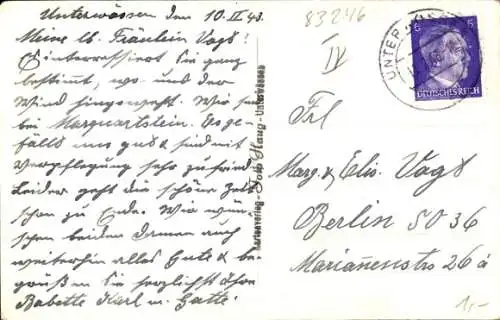 Unterwössen den 10.II.43.
Meine lb. Fräulein Vogt!
Es interressiert Sie ganz
bestimmt, wo uns der
Wind hingeweht. Wir sind
bei Marquartstein. Es ge-
fällt uns gut & sind mit
Verpflegung sehr zufrieden.
Leider geht die schöne Zeit
schon zu Ende. Wir wün-
schen beiden Damen auch
weiterhin alles Gute & be-
grüßen Sie herzlichst Ihre
Babette Karl u. Gatte.
Kartenverlag - Foto Haug - Unterwössen
83246
IV
UNTER
6
6
DEUTSCHES REICH
Frl
Marg. & Elis. Vogt
Berlin SO 36
Mariannenstr. 26a
1,-